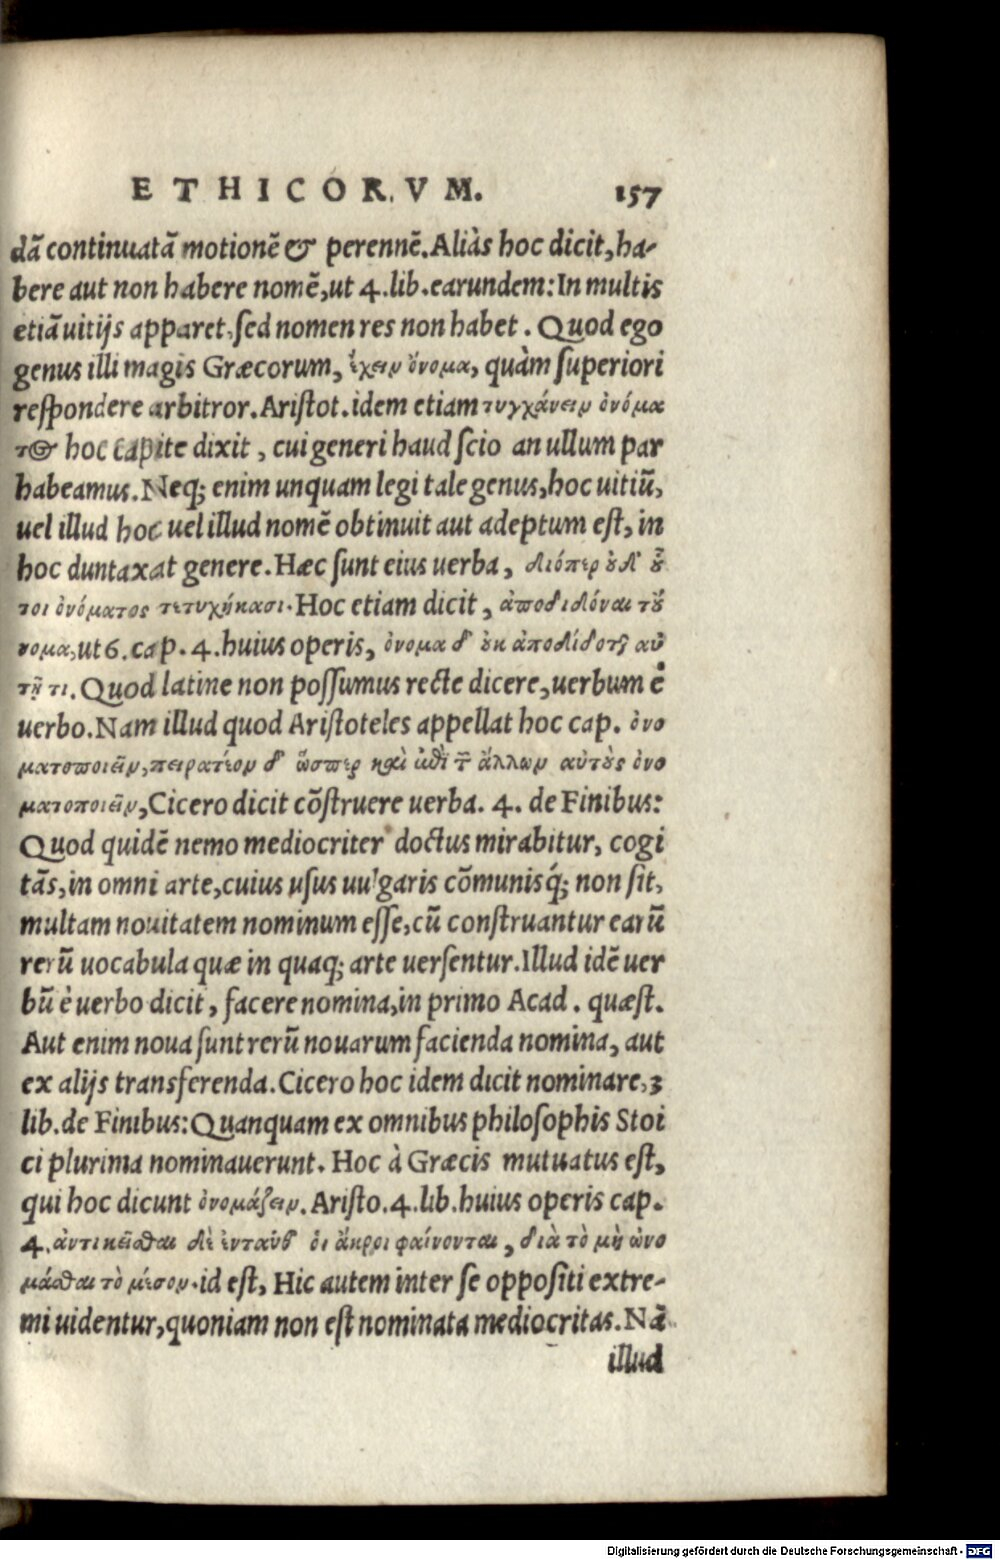 ETHICORVM. 157
dã continuatã motionẽ & perennẽ. Aliàs hoc dicit, ha-
bere aut non habere nomẽ, ut 4. lib. earundem: In multis
etiã uitijs apparet, sed nomen res non habet. Quod ego
genus illi magis Græcorum, ἔχειν ὄνομα, quàm superiori
respondere arbitror. Aristot. idem etiam τυγχάνειν ὀνόμα
τος hoc capite dixit, cui generi haud scio an ullum par
habeamus. Neq; enim unquam legi tale genus, hoc uitiũ,
uel illud hoc uel illud nomẽ obtinuit aut adeptum est, in
hoc duntaxat genere. Hæc sunt eius uerba, διόπερ ȣ̓δ' ȣ̓͂
τοι ὀνόματος τετυχήκασι. Hoc etiam dicit, ἀποδιδόναι τȣ̓́
νομα, ut 6. cap. 4. huius operis, ὄνομα δ' ȣ̓κ ἀποδίδοται αὐ
τῇ τι. Quod latine non possumus recte dicere, uerbum è
uerbo. Nam illud quod Aristoteles appellat hoc cap. ὀνο
ματοποιεῖν, πειρατέον δ' ὥσπερ καὶ ἐπὶ τ͂ ἄλλων αὐτȣ̀ς ὀνο
ματοποιεῖν, Cicero dicit cõstruere uerba. 4. de Finibus:
Quod quidẽ nemo mediocriter doctus mirabitur, cogi
tãs, in omni arte, cuius usus uulgaris cõmunisq́; non sit,
multam nouitatem nominum esse, cũ construantur earũ
rerũ uocabula quæ in quaq; arte uersentur. Illud idẽ uer
bũ è uerbo dicit, facere nomina, in primo Acad. quæst.
Aut enim noua sunt rerũ nouarum facienda nomina, aut
ex alijs transferenda. Cicero hoc idem dicit nominare, 3
lib. de Finibus: Quanquam ex omnibus philosophis Stoi
ci plurima nominauerunt. Hoc à Græcis mutuatus est,
qui hoc dicunt ὀνομάζειν. Aristo. 4. lib. huius operis cap.
4. ἀντικεῖσθαι δὲ ἐνταῦθ' οἱ ἄκροι φαίνονται, διὰ τὸ μὴ ὠνο
μάσθαι τὸ μέσον. id est, Hic autem inter se oppositi extre-
mi uidentur, quoniam non est nominata mediocritas. Nã
illud
Digitalisierung gefördert durch die Deutsche Forschungsgemeinschaft - DFG